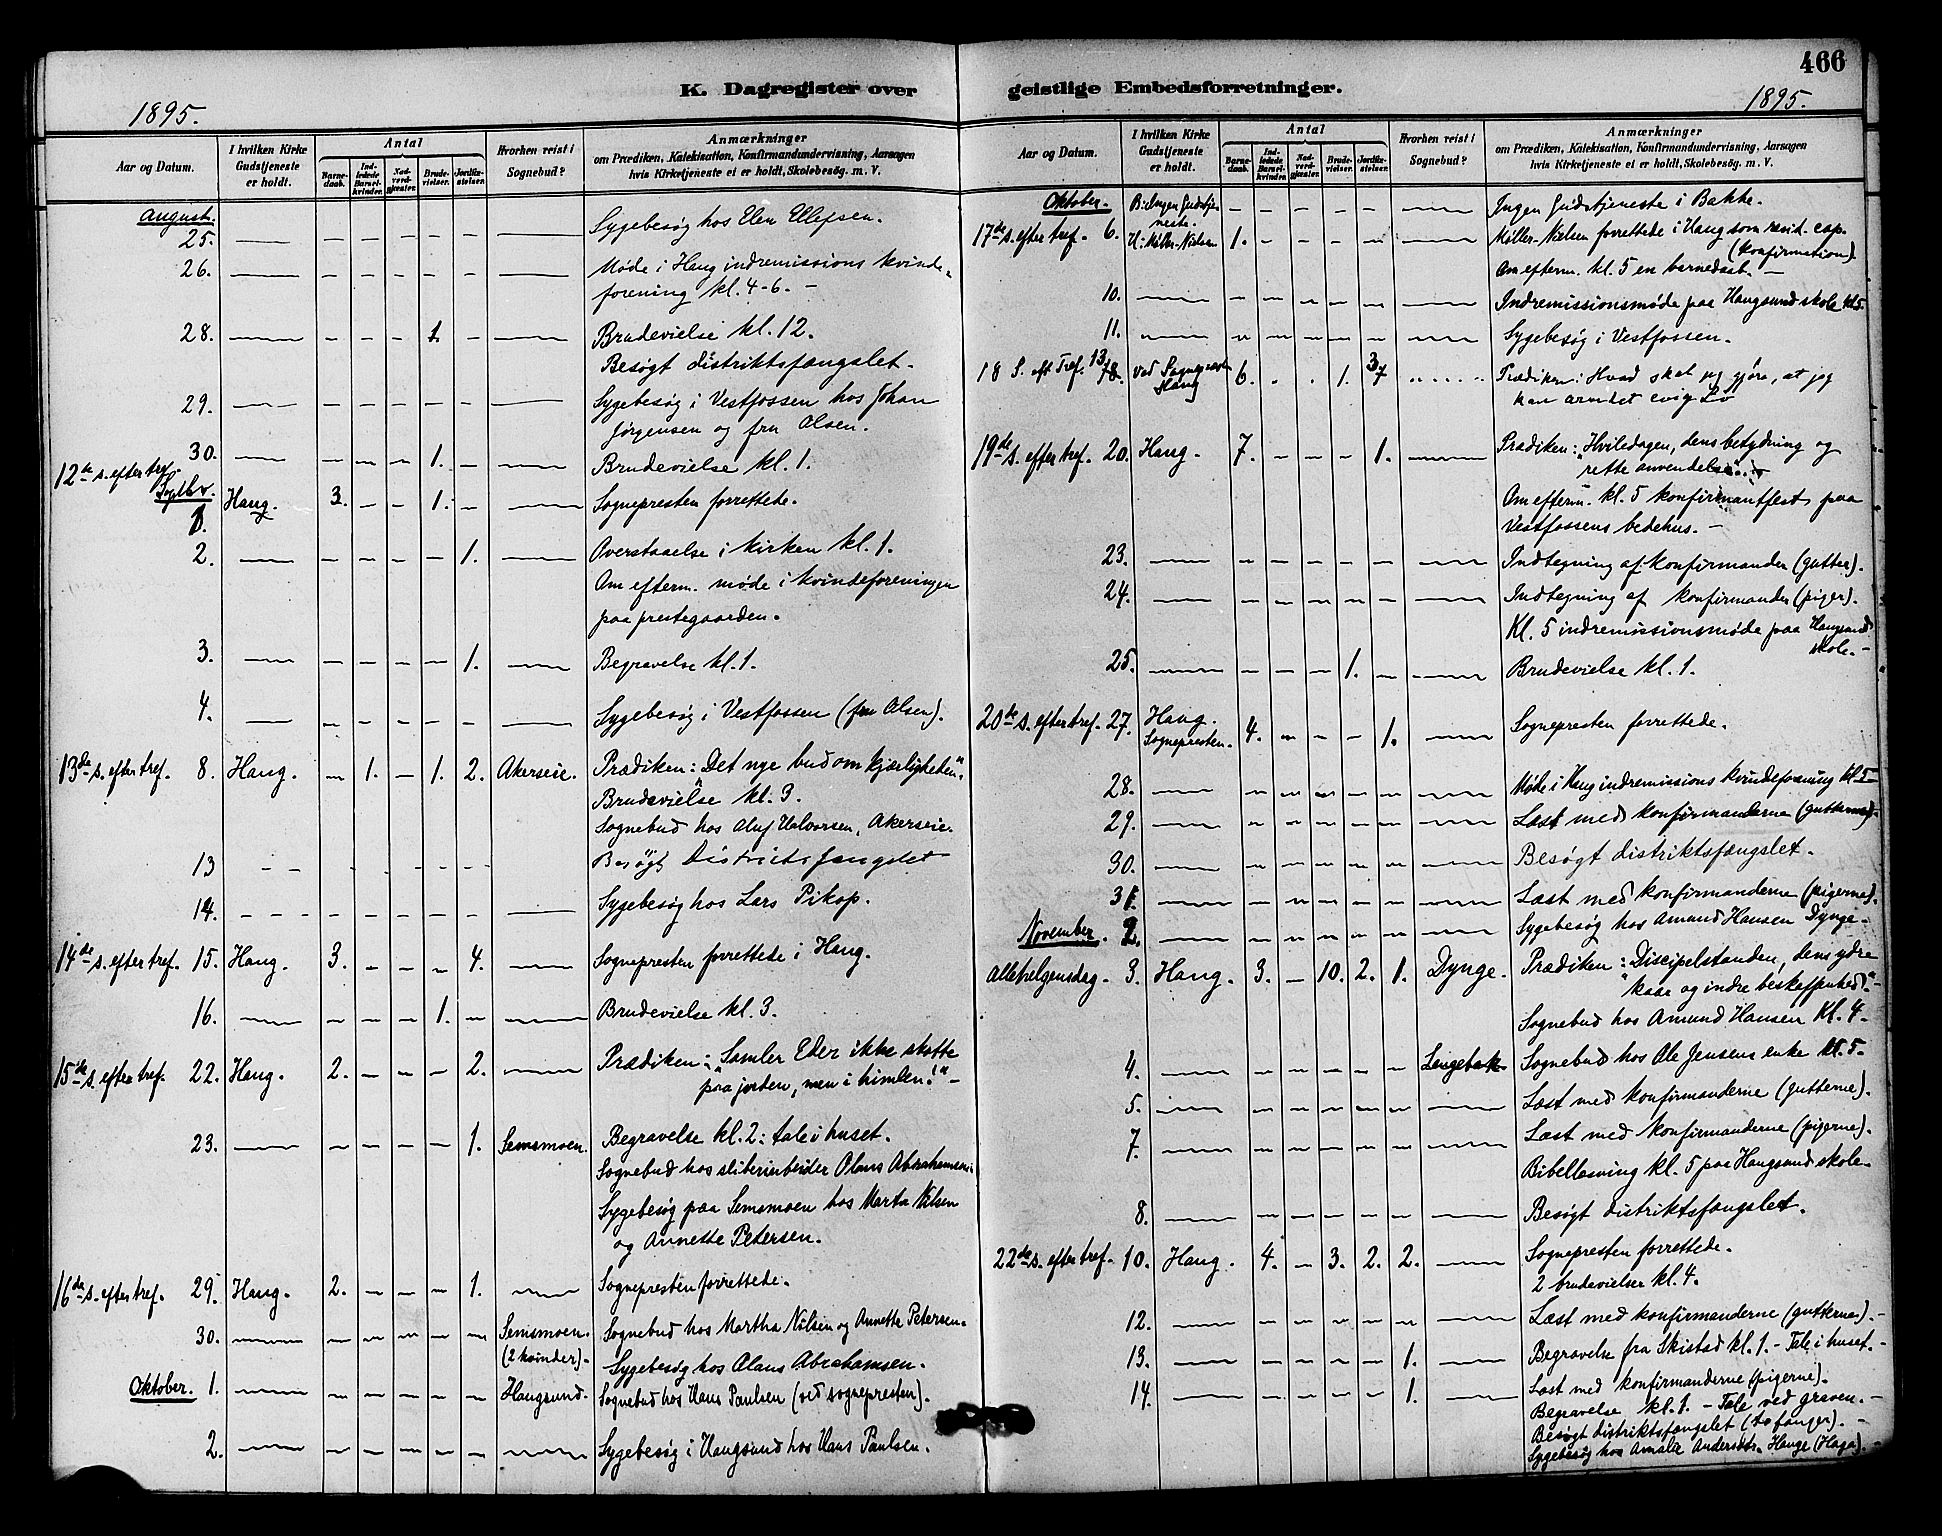 466
K. Dagregister over geistlige Embedsforretninger.
1895.
1895.
Aar og Datum.
I hvilken Kirke Gudstjeneste er holdt.
Antal
Barne-daab.
Ind-ledede Barsel-kvinder.
Nad-verd-gjæster.
Brude-vielser.
Jordfæs-stelser.
Hvorhen reist i Sognebud?
Anmærkninger
om Prædiken, Katekisation, Konfirmandundervisning, Aarsagen
hvis Kirketjeneste ei er holdt, Skolebesøg. m. V.
August.
25. Sygebesøg hos Elen Ellefsen.
26. Møde i Haug indremissions kvinde-
forening kl. 4-6. -
28. 1. Brudevielse kl. 12.
Besøgt distriktsfængslet.
29. Sygebesøg i Vestfossen hos Johan
Jørgensen og fru Olsen.
30. 1. Brudevielse kl. 1.
12te s. efter tref.
Septbr. 1. Haug. 3. 1. Sognepresten forrettede.
2. 1. Overstaaelse i kirken kl. 1.
Om efterm. møde i kvindeforeningen
paa prestegaarden.
3. 1. Begravelse kl. 1.
4. Sygebesøg i Vestfossen (fru Olsen).
13de s. efter tref. 8. Haug. 1. 1. 2. Akerseie. Prædiken: "Det nye bud om kjærligheden".
Brudevielse kl. 3.
Sognebud hos Oluf Halvorsen, Akerseie.
13 Besøgt Distriktsfængslet
14. Sygebesøg hos Lars Pikop.
14de s. efter tref. 15. Haug. 3. 4. Sognepresten forrettede i Haug.
16. 1. Brudevielse kl. 3.
15de s. efter tref. 22. Haug. 2. 2. Prædiken: "Samler Eder ikke skatte
paa jorden, men i himlen!" -
23. 1. Semsmoen. Begravelse kl. 2: tale i huset.
Sognebud hos sliberiarbeider Olaus Abrahamsen
Sygebesøg paa Semsmoen hos Marta Nilsen
og Annette Petersen.
16de s. efter tref. 29. Haug. 2. 1. Sognepresten forrettede.
30. Semsmoen. Sognebud hos Martha Nilsen og Annette Petersen.
(2 kvinder). Sygebesøg hos Olaus Abrahamsen.
Oktober. 1. Haugsund. Sognebud hos Hans Paulsen (ved sognepresten).
2. Sygebesøg i Haugsund hos Hans Paulsen.
Aar og Datum.
I hvilken Kirke Gudstjeneste er holdt.
Antal
Barne-daab.
Ind-ledede Barsel-kvinder.
Nad-verd-gjæster.
Brude-vielser.
Jordfæs-stelser.
Hvorhen reist i Sognebud?
Anmærkninger
om Prædiken, Katekisation, Konfirmandundervisning, Aarsagen
hvis Kirketjeneste ei er holdt, Skolebesøg. m. V.
Oktober. B: Ingen Gudstje- Ingen Gudstjeneste i Bakke.
neste.
17de s. efter tref. 6. H: Møller-Nielsen 1. Møller-Nielsen forrettede i Haug som resid. cap.
(konfirmation).
Om efterm. kl. 5 en barnedaab. -
10. Indremissionsmøde paa Haugsund skole kl. 5.
11. Sygebesøg i Vestfossen.
18 S. eft Tref. 13. ved Sognepresten 6. 1. Prædiken: Hvad skal jeg gjöre, at jeg
Haug kan arve det evig Liv
19de s. efter tref. 20. Haug. 7. 1. Prædiken: "Hviledagen, dens betydning og
rette anvendelse".
Om efterm. kl. 5 konfirmantfest paa
Vestfossens bedehus. -
23. Indtegning af konfirmander (gutter).
24. Indtegning af konfirmander (piger).
Kl. 5 indremissionsmøde paa Haugsund
skole. -
25. 1. Brudevielse kl. 1.
20de s. efter tref. 27. Haug. 4. 1. Sognepresten forrettede.
Sognepresten.
28. Møde i Haug indremissions kvindeforening kl 5-
29. Læst med konfirmanderne (gutterne).
30. Besøgt distriktsfængslet.
31. Læst med konfirmanderne (pigerne).
November. 2. Sygebesøg hos Amund Hansen Dynge.
Allehelgensdag. 3. Haug. 3. 10. 2. 1. Dynge. Prædiken: "Discipelstanden, dens ydre
kaar og indre beskaffenhed". -
Sognebud hos Amund Hansen Kl. 4.
4. Lengebak Sognebud hos Ole Jensens enke kl. 5.
5. Læst med konfirmanderne (gutterne).
7. Læst med konfirmanderne (pigerne).
Bibellæsning kl. 5 paa Haugsund skole.
8. Besøgt distriktsfængslet.
22de s. efter tref. 10. Haug. 4. 3. 2. 2. Sognepresten forrettede.
2 brudevielser kl. 4.
12. Læst med konfirmanderne (gutterne). -
13. 1. Begravelse fra Skistad kl. 1. - Tale i huset. -
14. 1. Læst med konfirmanderne (pigerne).
Begravelse kl. 1. - Tale ved graven. -
Besøgt distriktsfængslet (to fanger). -
Sygebesøg hos Amalie Andersdtr. Hauge (Haga). -